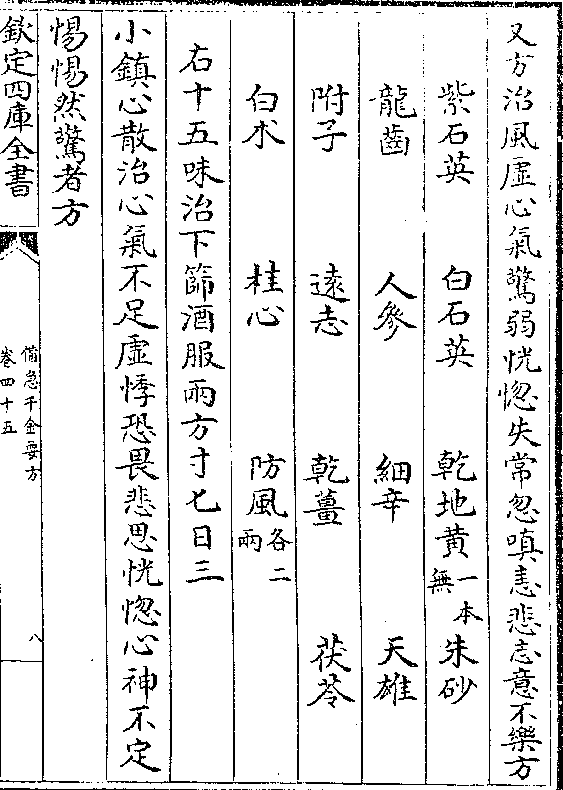 又方治風虛心氣驚弱恍惚失常忽嗔恚悲志意不樂方
紫石英 白石英 乾地黃一本無 朱砂
龍齒 人參 細辛 天雄
附子 遠志 乾薑 茯苓
白术 桂心 防風各二兩
右十五味治下篩酒服兩方寸匕日三
小鎮心散治心氣不足虛悸恐畏悲思恍惚心神不定
惕惕然驚者方
欽定四庫全書
備急千金要方
卷四十五
八